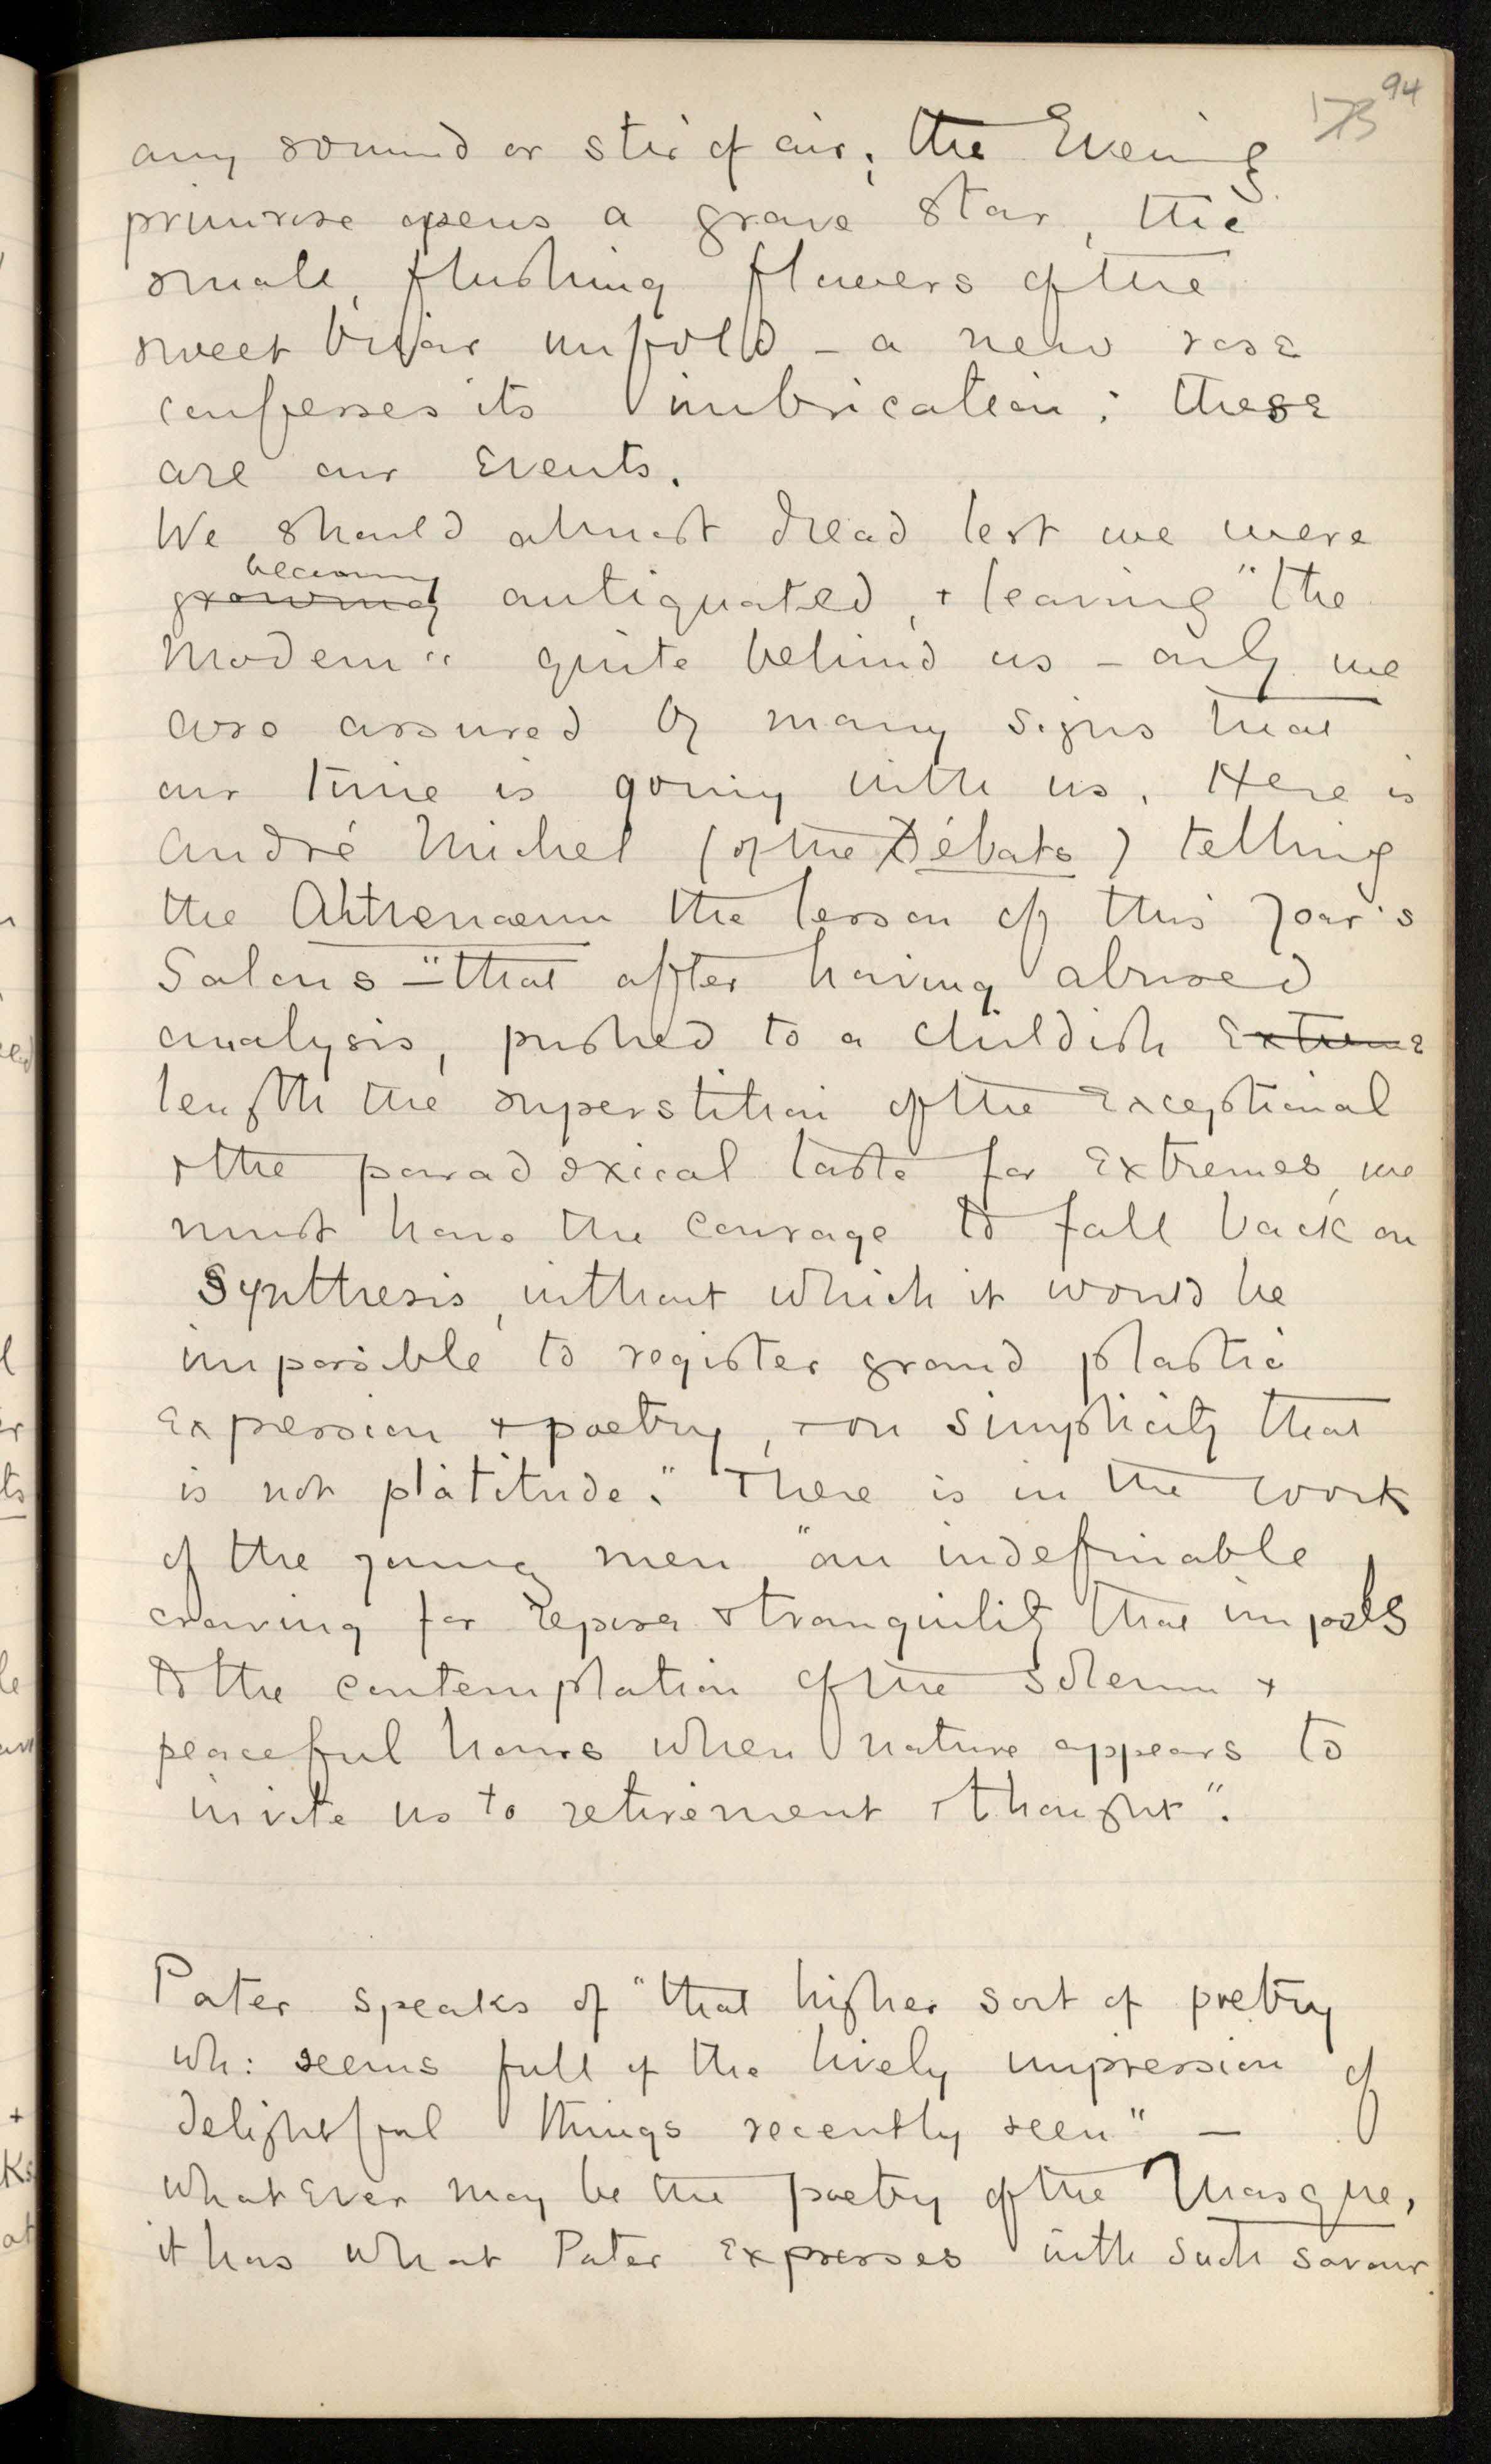 94
173
any sound or stir of air; the Evening
primrose opens a grave star, the
small, flushing flowers of the
sweet briar unfold – a new rose
confesses its imbrication: these
are our Events.
We should almost dread lest we were
becoming
growing antiquated, + leaving "the
Modern" quite behind us – only we
are assured by many signs that
our time is going with us. Here is
André Michel (of the Débats) telling
the Athenaeum the lesson of this year's
Salons – "that after having abused
analysis, pushed to a childish Extreme
length the superstition of the Exceptional
+ the paradoxical taste for Extremes, we
must have the courage to fall back on
Synthesis, without which it would be
impossible to register grand plastic
Expression + poetry, + on simplicity that
is not platitude." There is in the work
of the young men "an indefinable
craving for repose + tranquility that impels
to the contemplation of the solemn +
peaceful hours when nature appears to
invite us to retirement + thought".
Pater speaks of "that higher sort of poetry
wh: seems full of the lively impression of
delightful things recently seen" –
whatEver may be the poetry of the Masque,
it has what Pater Expresses with such savour